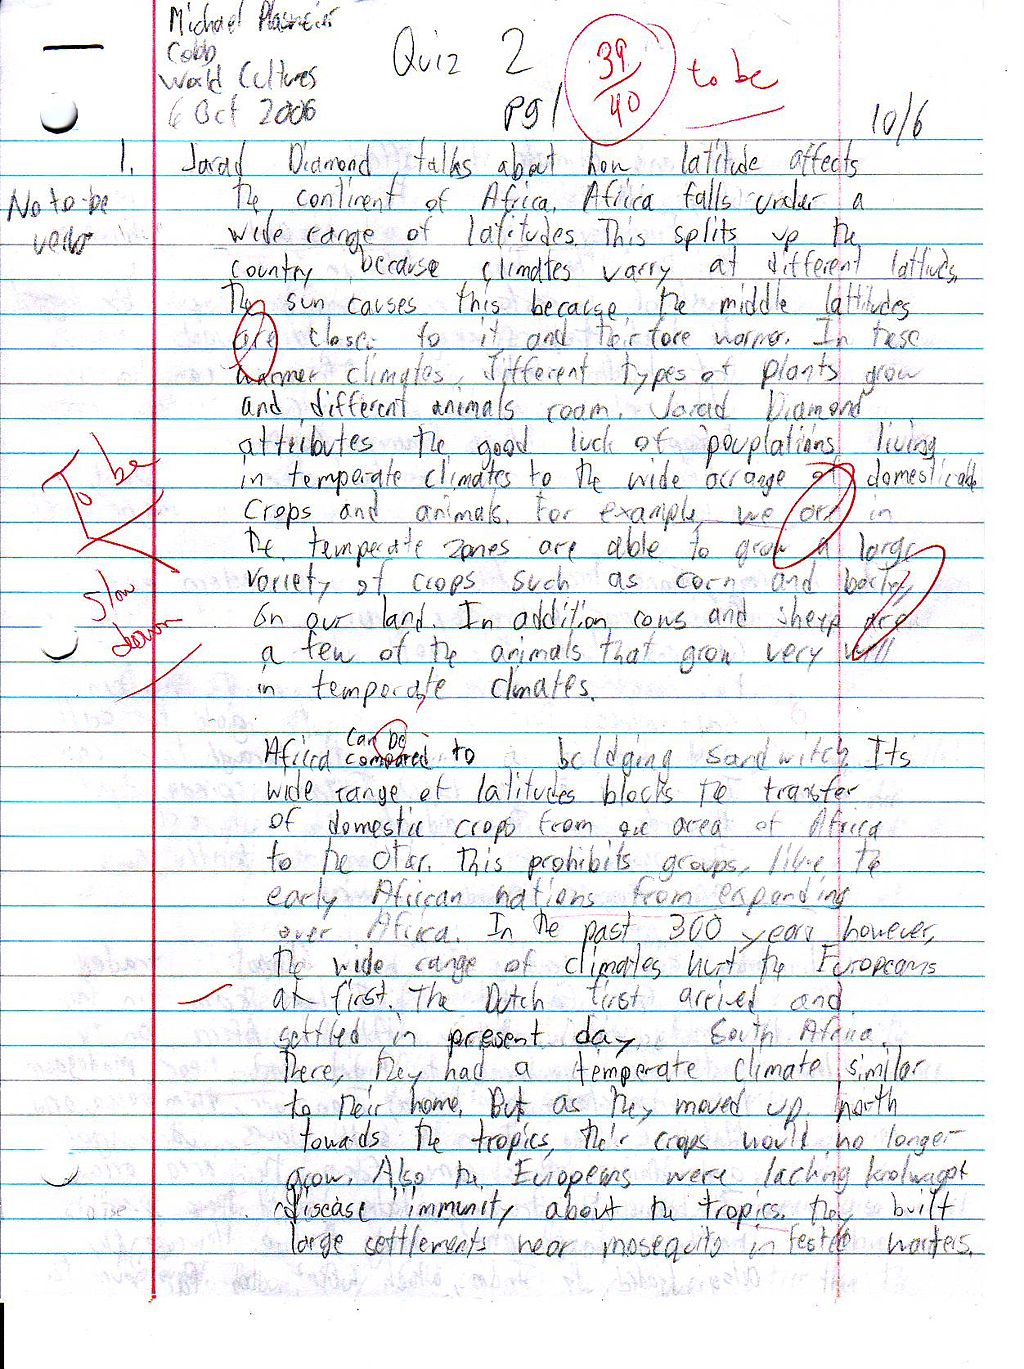 Michael Plasmeier
Cobb
World Cultures
6 Oct 2006
Quiz 2
pg 1
39/40
to be
10/6
No to be
verbs
1. Jarad Diamond talks about how latitude affects
the continent of Africa. Africa falls under a
wide range of latitudes. This splits up the
country because climates varry at different lattiudes.
The sun causes this because the middle lattitudes
are closer to it and theirfore warmer. In these
warmer climates, different types of plants grow
and different animals roam. Jarad Diamond
attributes the good luck of pouplations living
in temperate climates to the wide arrange of domesticable
crops and animals. For example, we are in
the temperate zones are able to grow a large
variety of crops such as corn and barley
on our land. In addition cows and sheep are
a few of the animals that grow very well
in temperate climates.
To be
Slow
down
Africa can be compared to a sandwitch. Its
wide range of latitudes blocks the transfer
of domestic crops from one area of Africa
to the other. This prohibits groups, like the
early African nations from expanding
over Africa. In the past 300 years however,
the wide range of climates hurt the Europeans
at first. The Dutch first arived and
settled in present day South Africa.
There, they had a temperate climate similar
to their home. But as they moved up north
towards the tropics, their crops would no longer
grow. Also the Europeans were lacking
disease immunity about the tropics. they built
large settlements near mosequito infested